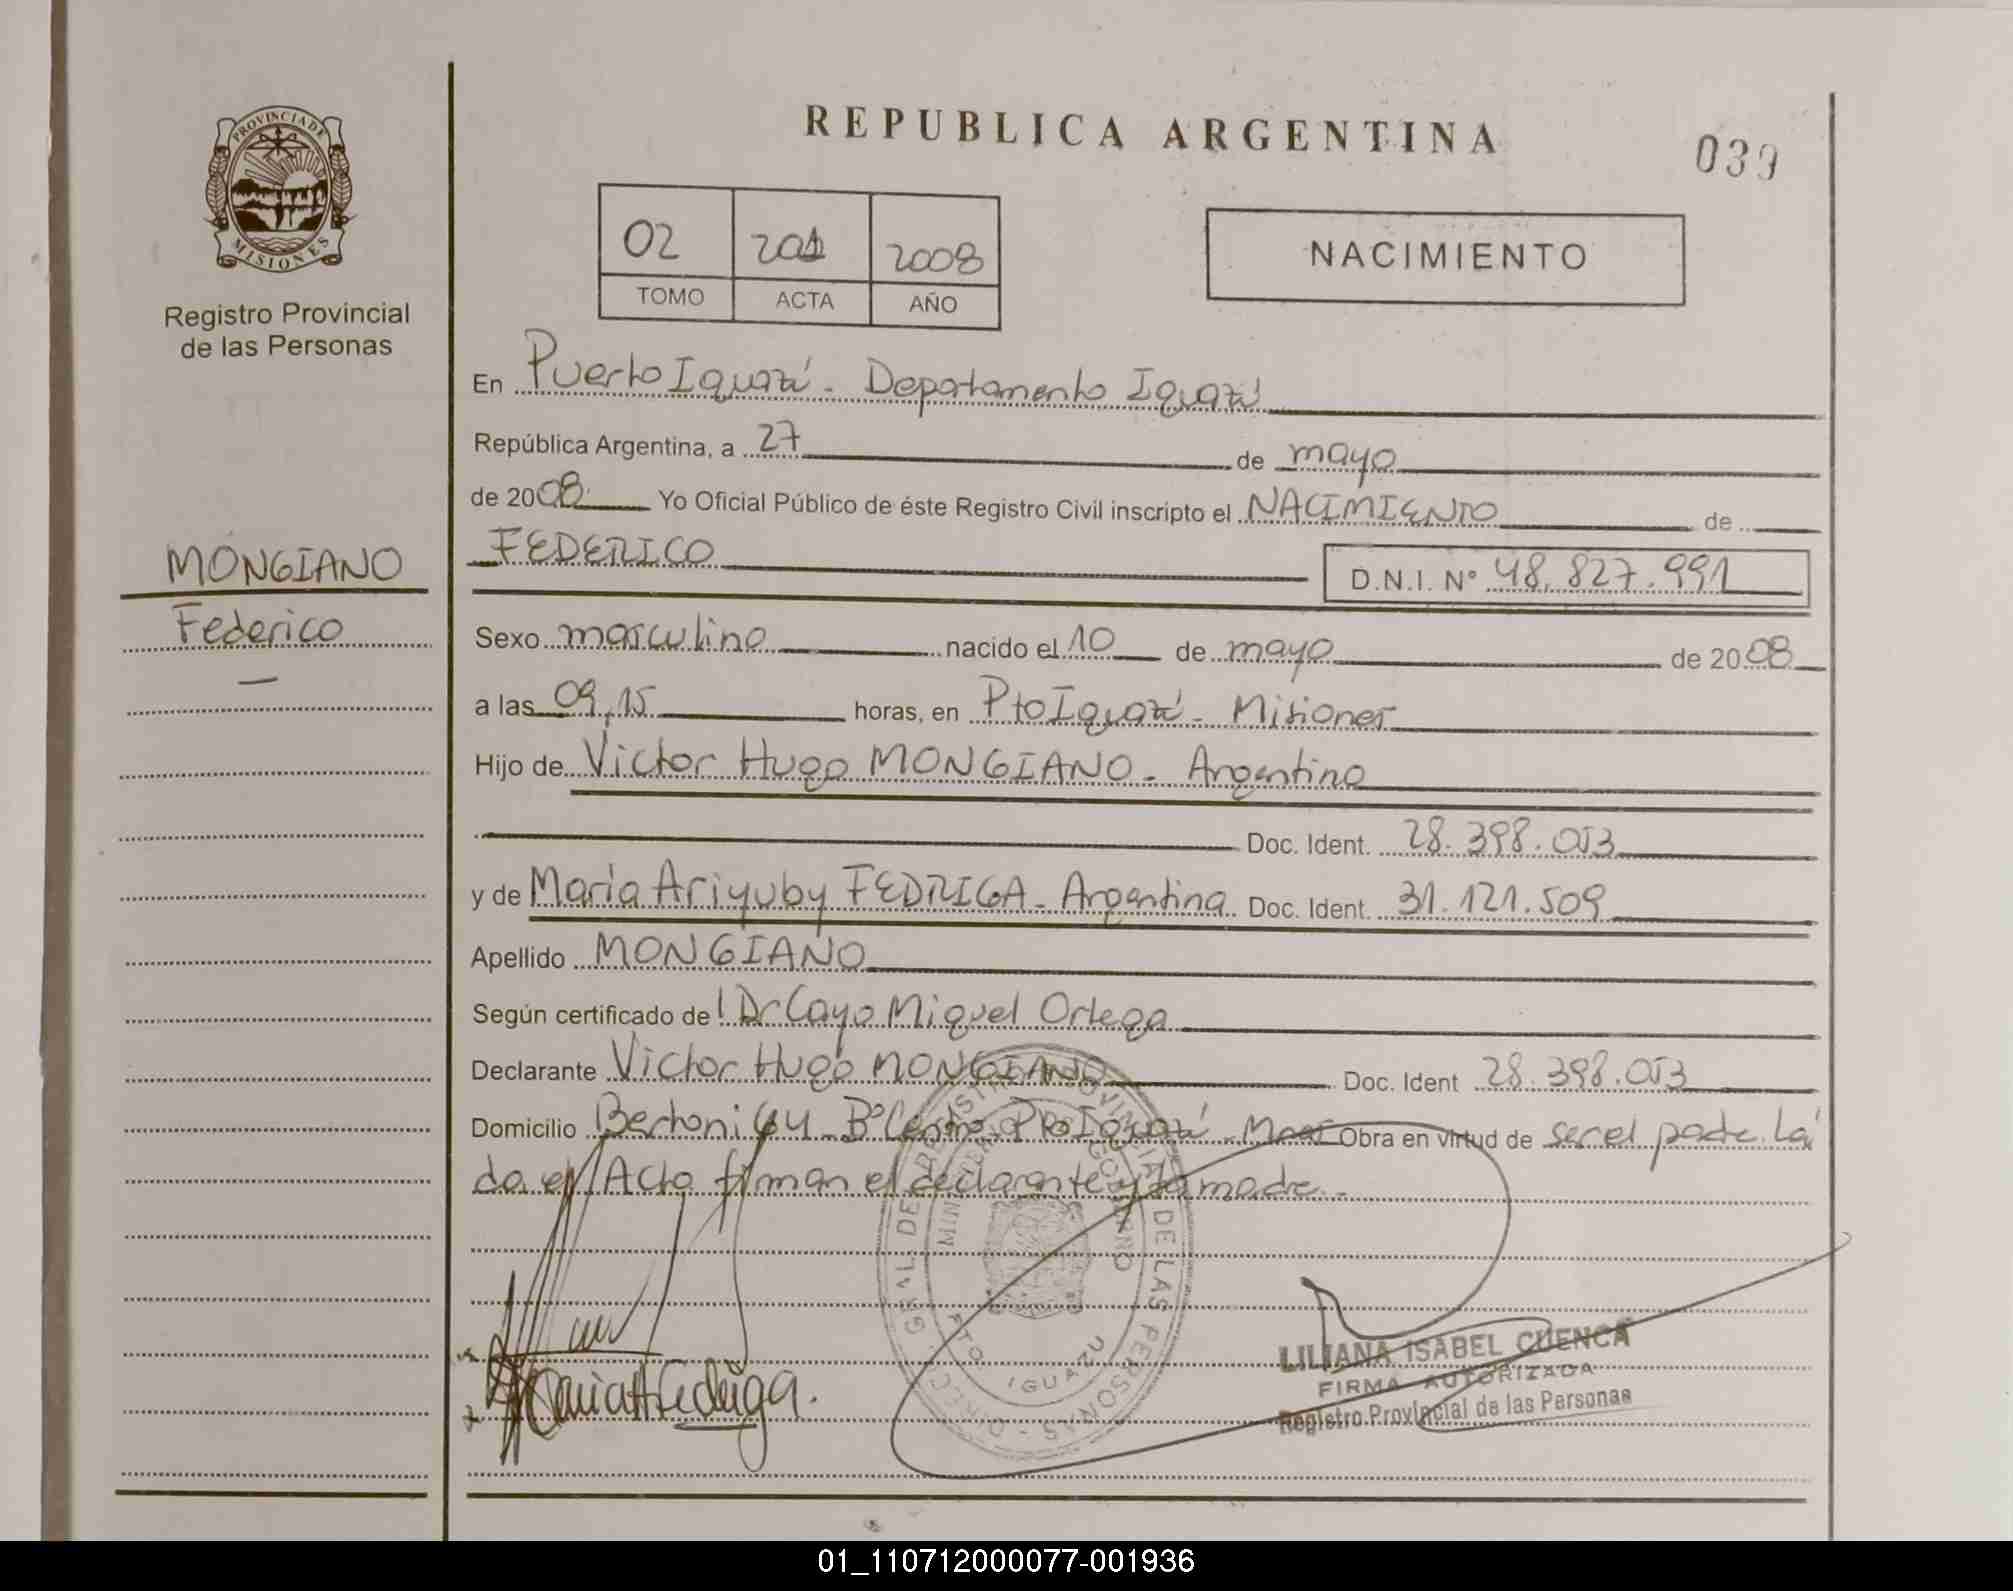 REPUBLICA ARGENTINA
039
PROVINCIA DE
MISIONES
Registro Provincial
de las Personas
02 201 2008
TOMO ACTA AÑO
NACIMIENTO
En Puerto Iguazú - Departamento Iguazú
República Argentina, a 27 de mayo
de 2008 Yo Oficial Público de éste Registro Civil inscripto el NACIMIENTO de
FEDERICO D.N.I. N° 48.827.991
MONGIANO
Federico
Sexo masculino nacido el 10 de mayo de 2008
a las 09,15 horas, en Pto Iguazú - Misiones
Hijo de Victor Hugo MONGIANO - Argentino
Doc. Ident. 28.398.053
y de María Ariyuby FEDRIGA - Argentina Doc. Ident. 31.121.509
Apellido MONGIANO
Según certificado del Dr Cayo Miguel Ortega
Declarante Victor Hugo MONGIANO Doc. Ident 28.398.053
Domicilio Bertoni 64 - B° Centro Pto Iguazú - Mnes Obra en virtud de ser el padre. Leí
da el Acta firman el declarante y la madre -
DIREC. GRAL. DE REGISTRO PROVINCIAL DE LAS PERSONAS
MINISTERIO DE GOBIERNO
PTO IGUAZU
LILIANA ISABEL CUENCA
FIRMA AUTORIZADA
Registro Provincial de las Personas
Maria A Fedriga.
01_110712000077-001936